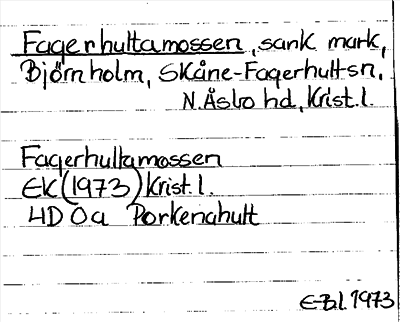 Fagerhultamossen, sank mark,
Björnholm, Skåne-Fagerhult sn,
N. Åsbo hd, Krist. l.
Fagerhultamossen
EK (1973) Krist. l.
4D 0a Porkenahult
E-B.l. 1973